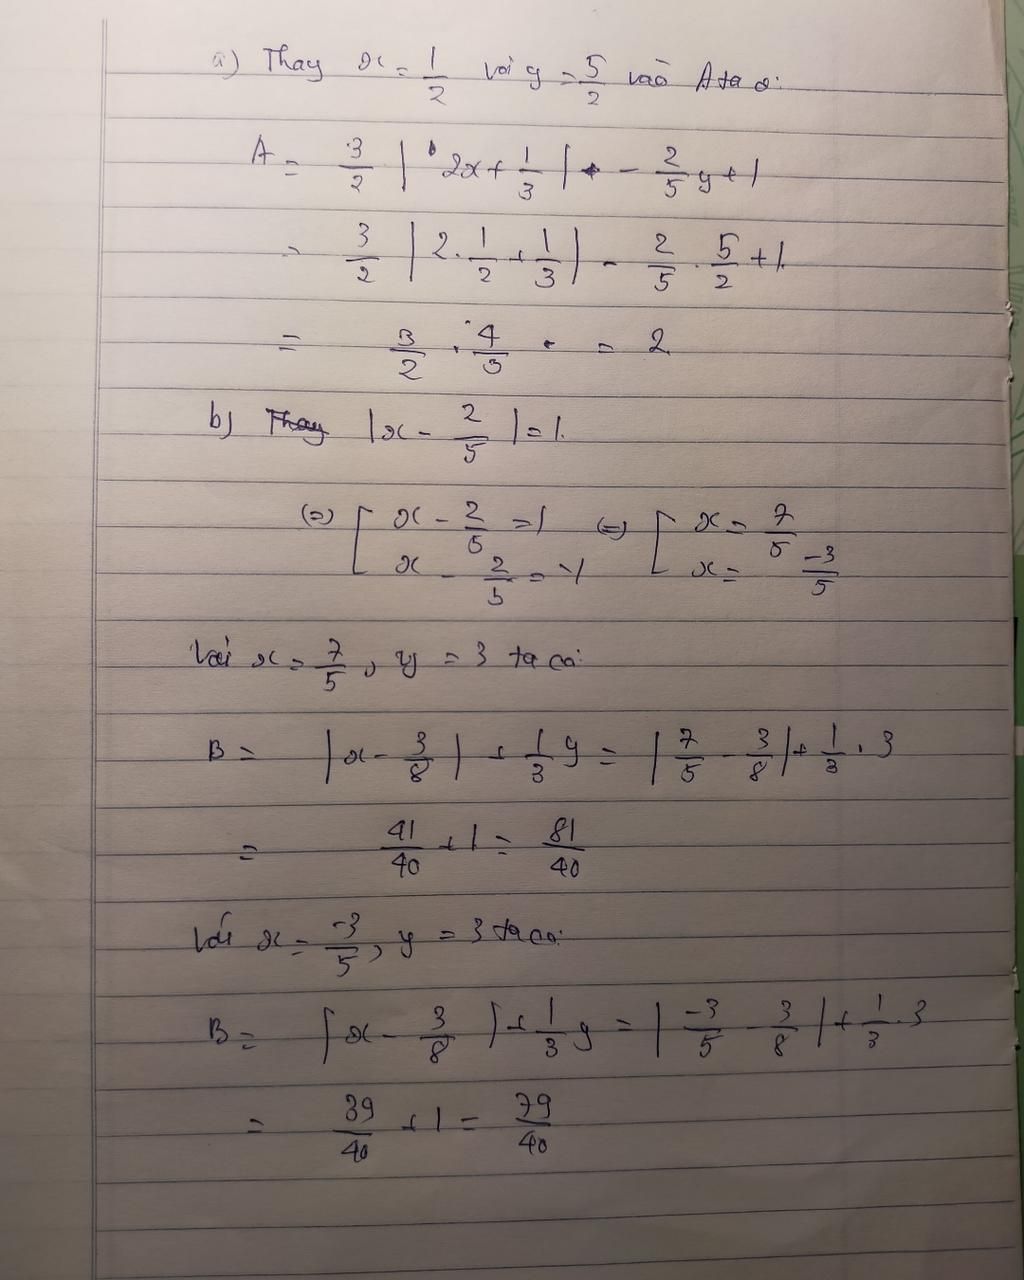 a) Thay x = 1/2 với y = 5/2 vào A ta có:
A = 3/2 | 2x + 1/3 | - 2/5 y + 1
= 3/2 | 2 . 1/2 + 1/3 | - 2/5 . 5/2 + 1.
= 3/2 . 4/3 = 2
b) Thay | x - 2/5 | = 1.
(=) [ x - 2/5 = 1 (=) [ x = 7/5
x - 2/5 = -1 x = -3/5
Với x = 7/5, y = 3 ta có:
B = | x - 3/8 | + 1/3 y = | 7/5 - 3/8 | + 1/3 . 3
= 41/40 + 1 = 81/40
Với x = -3/5, y = 3 ta có:
B = | x - 3/8 | + 1/3 y = | -3/5 - 3/8 | + 1/3 . 3
= 39/40 + 1 = 79/40